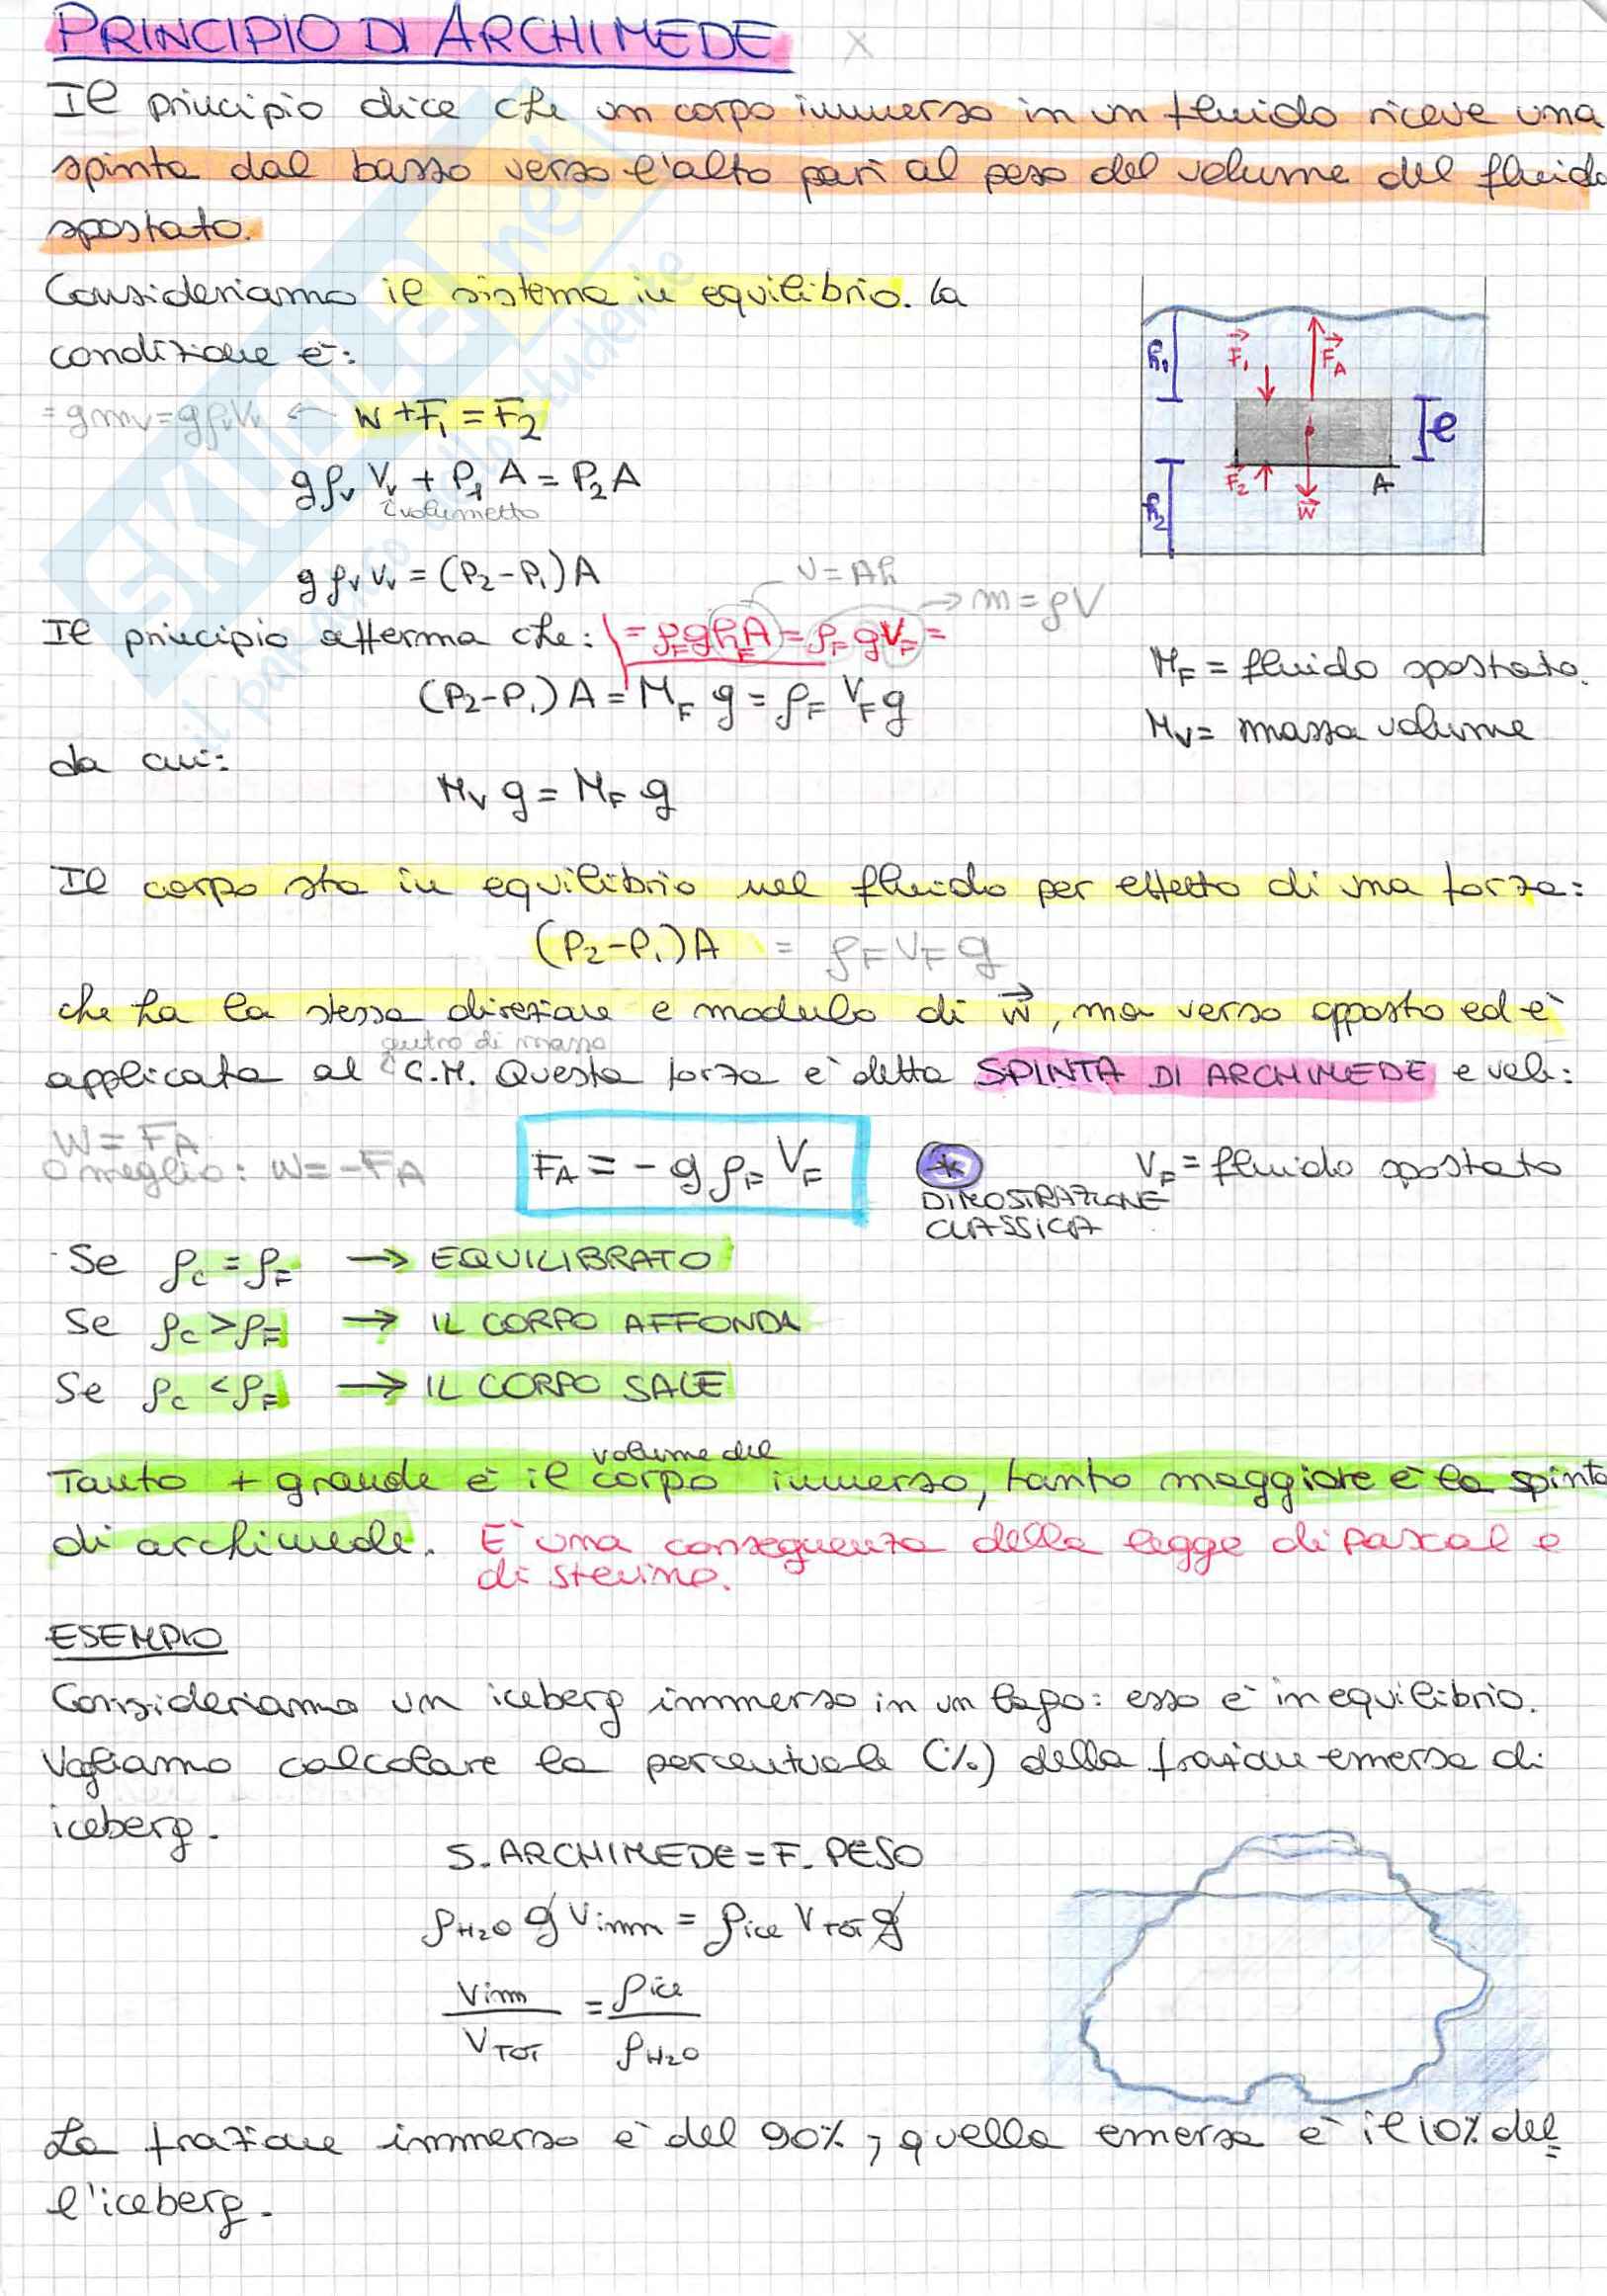 PRINCIPIO DI ARCHIMEDE x
Il principio dice che un corpo immerso in un fluido riceve una
spinta dal basso verso l'alto pari al peso del volume del fluido
spostato.
Consideriamo il sistema in equilibrio. La
condizione è:
= g mv = g ρv Vv ← W + F₁ = F₂
g ρv Vv + P₁ A = P₂ A
volumetto
g ρv Vv = (P₂ - P₁) A
V = Ah
→ m = ρV
Il principio afferma che: = ρF g hF A = ρF g VF =
(P₂ - P₁) A = MF g = ρF VF g
MF = fluido spostato.
MV = massa volume
da cui:
MV g = MF g
h₁
F₁
FA
l
F₂
W
A
h₂
Il corpo sta in equilibrio nel fluido per effetto di una forza:
(P₂ - P₁) A = ρF VF g
che ha la stessa direzione e modulo di W, ma verso opposto ed è
centro di massa
applicata al C.M. Questa forza è detta SPINTA DI ARCHIMEDE e vale:
W = FA
O meglio: W = -FA
FA = - g ρF VF
*
DIMOSTRAZIONE
CLASSICA
VF = fluido spostato
Se ρc = ρF → EQUILIBRATO
Se ρc > ρF → IL CORPO AFFONDA
Se ρc < ρF → IL CORPO SALE
volume del
Tanto + grande è il corpo immerso, tanto maggiore è la spinta
di archimede. È una conseguenza della legge di Pascal e
di stevino.
ESEMPIO
Consideriamo un iceberg immerso in un lago: esso è in equilibrio.
Vogliamo calcolare la percentuale (%) della frazione emersa di
iceberg.
S. ARCHIMEDE = F. PESO
ρH₂O g Vimm = ρice VTOT g
Vimm / VTOT = ρice / ρH₂O
La frazione immersa è del 90%, quella emersa è il 10% del
l'iceberg.
SKUOLA.net
il paradiso dello studente